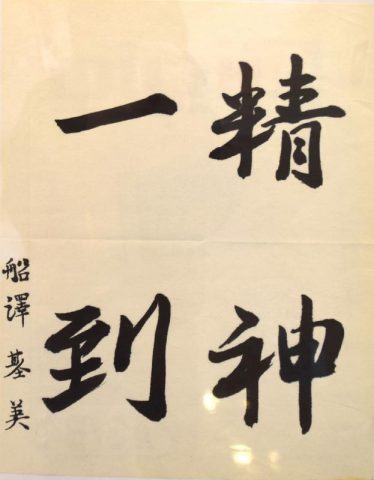 精神
一到
船澤基美